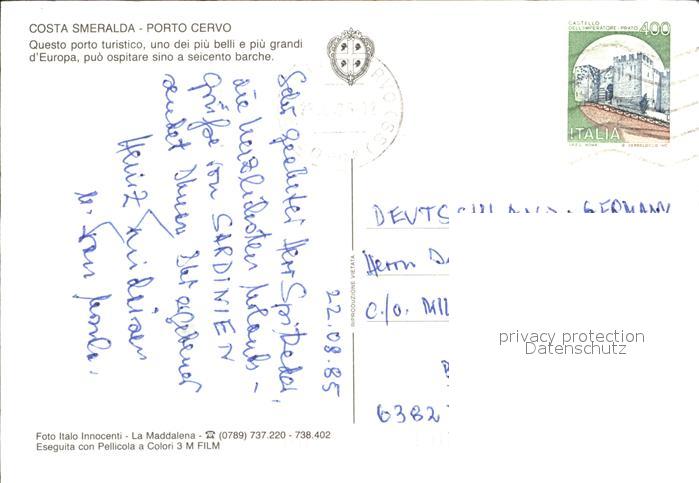 COSTA SMERALDA - PORTO CERVO
Questo porto turistico, uno dei più belli e più grandi
d'Europa, può ospitare sino a seicento barche.
CASTELLO
DELL'IMPERATORE - PRATO 400
ITALIA
22.08.85
Sehr geehrter Herr
die herzlichsten Urlaubs-
grüße von SARDINIEN
sendet Ihnen Ihr ergebener
Heinz
u. Frau
RIPRODUZIONE VIETATA
DEUTSCHLAND - GERMANY
Herrn
c/o. MI
6382
privacy protection
Datenschutz
Foto Italo Innocenti - La Maddalena - ☎ (0789) 737.220 - 738.402
Eseguita con Pellicola a Colori 3 M FILM